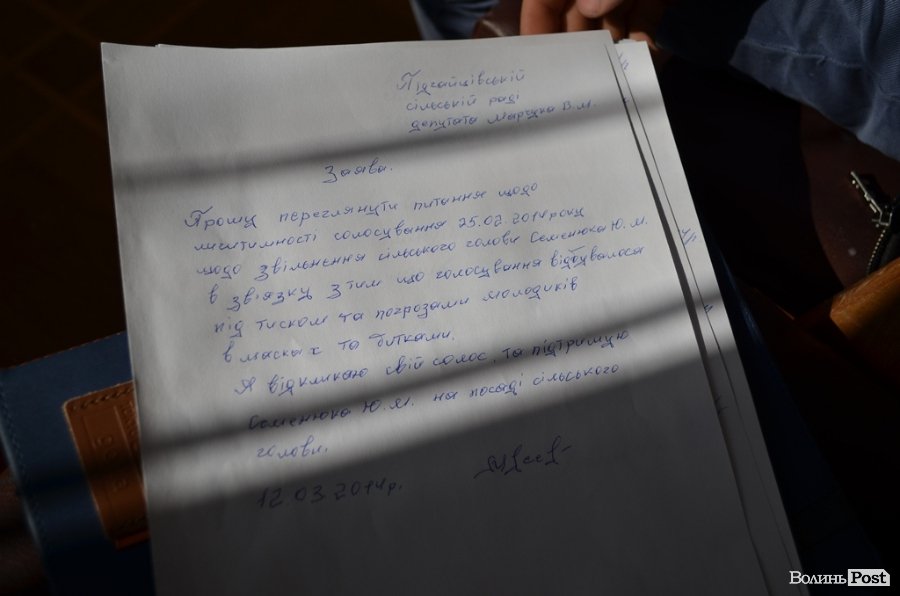 Підгайцівській
сільській раді
депутата Марчука В.М.
Заява.
Прошу переглянути питання щодо
легітимності голосування 25.02.2014 року
щодо звільнення сільського голови Семенюка Ю.М.
в звязку з тим що голосування відбувалося
під тиском та погрозами молодиків
в масках та битками.
Я відкликаю свій голос, та підтримую
Семенюка Ю.М. на посаді сільського
голови.
12.03.2014р.
ВолиньPost